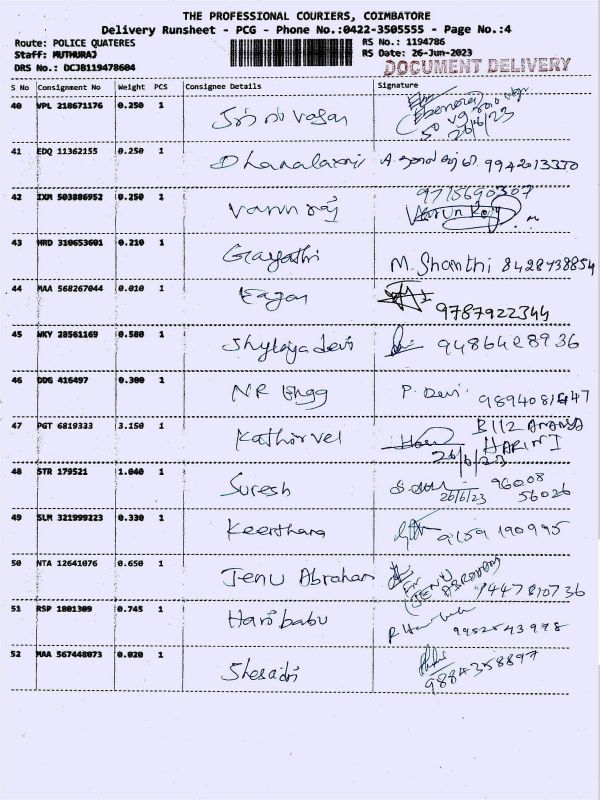 THE PROFESSIONAL COURIERS, COIMBATORE
Delivery Runsheet - PCG - Phone No.:0422-3505555 - Page No.:4
Route: POLICE QUATERES
RS No.: 1194786
Staff: MUTHURAJ
RS Date: 26-Jun-2023
DRS No.: DCJB119478604
DOCUMENT DELIVERY
S No Consignment No Weight PCS Consignee Details Signature
40 VPL 218671176 0.250 1 Srinivasan
26/6/23
41 EDQ 11362155 0.250 1 Dhanalaxmi 9942013330
42 IXM 503886952 0.250 1 Varun raj 9715690307
Varun Raj
43 HRD 310653601 0.210 1 Gayathri M. Shanthi 8428738854
44 MAA 568267044 0.010 1 9787922344
45 WKY 20561169 0.580 1 Shyloja devi 9486428936
46 DDG 416497 0.300 1 NR Engg P. Devi 9894081647
47 PGT 6819333 3.150 1 Kathirvel B112 ANANDA
HARINI
26/6/23
48 STR 179521 1.040 1 Suresh 96008
26/6/23 56026
49 SLM 321999223 0.330 1 Keerthana 9159190995
50 NTA 12641076 0.650 1 Jenu Abraham
JENU
ABRAHAM
9447810736
51 RSP 1801309 0.745 1 Hari babu
9952543978
52 MAA 567448073 0.020 1 Shesadri
9884358897